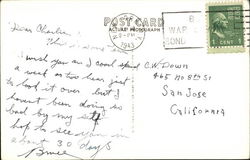 POST CARD
ACTUAL PHOTOGRAPH
1943
B
WAR
BOND
1 CENT 1
Dear Charlie
I wish you and I could spend
a week or two here just
to look it over but I
havent been doing so
bad by my self
hop to see you in
about 30 days
Bruce
C.W. Down
445 No 8th St
San Jose
California